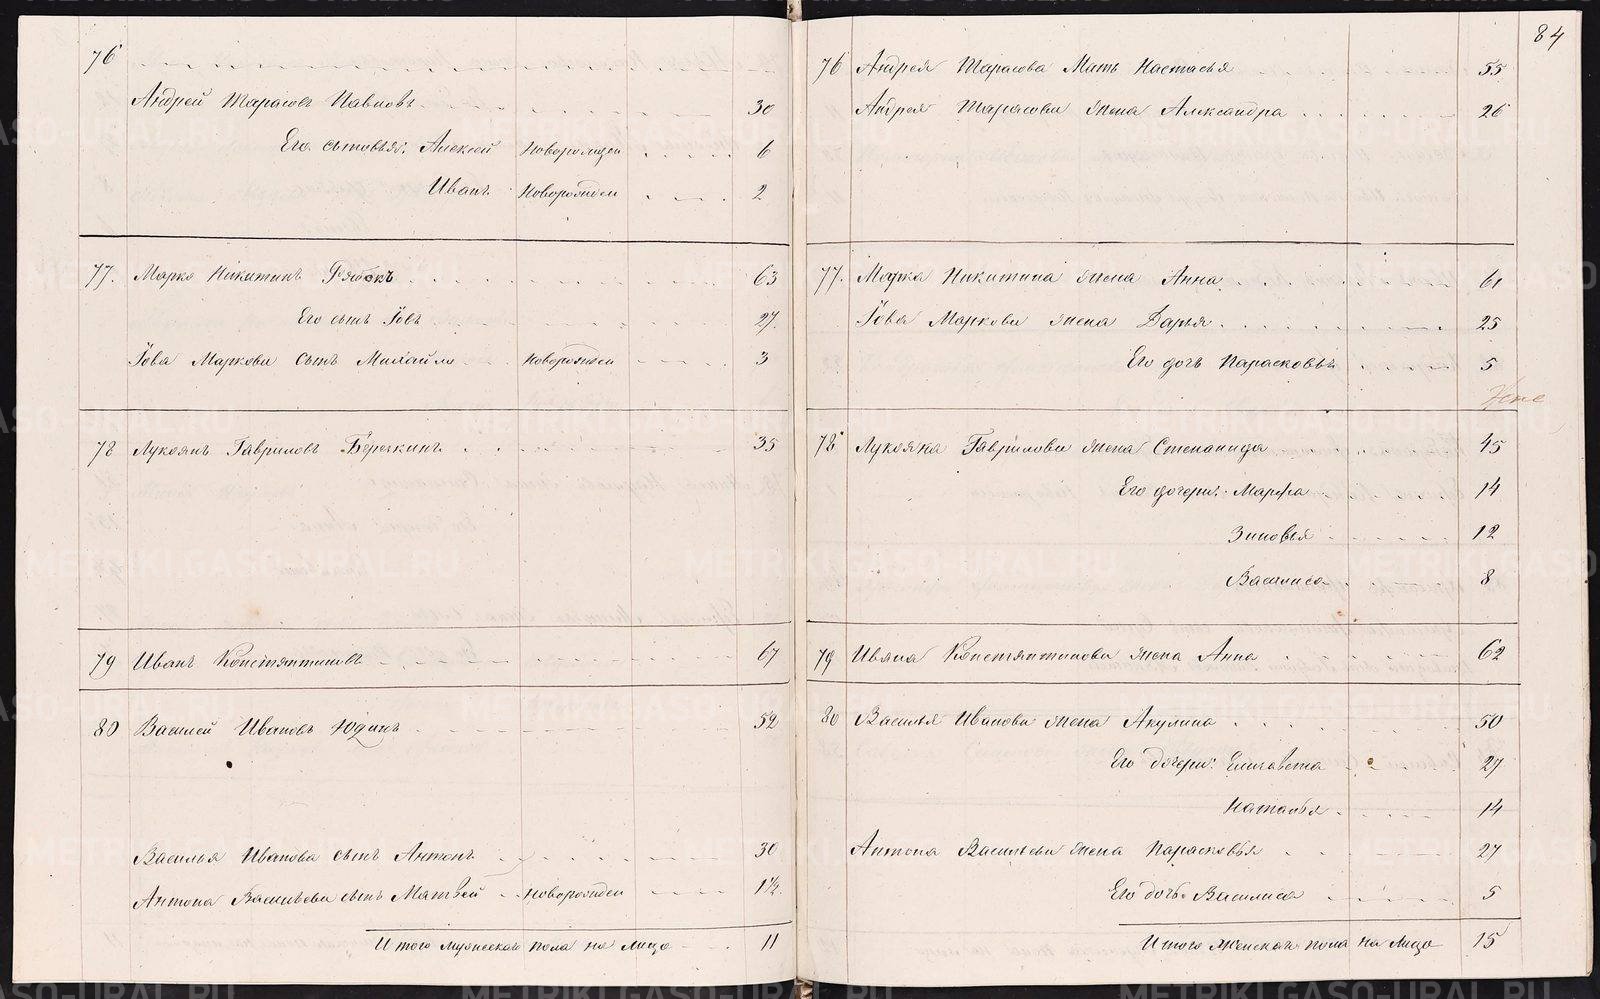 76
Андрей Тарасовъ Павловъ 30
Его сыновья: Алексей новорожден 6
Иванъ новорожден 2
77. Марко Никитинъ 63
Его сынъ Іовъ 27.
Іова Маркова сынъ Михайло новорожден 3
78 Лукоянъ Гавриловъ Берёзкинъ 35
79 Иванъ Константиновъ 67
80 Василей Ивановъ Юдинъ 52
Василья Иванова сынъ Антонъ 30
Антона Васильева сынъ Матвей новорожден 1½
Итого мужескаго пола на лицо 11
84
76 Андрея Тарасова Мать Настасья 55
Андрея Тарасова жена Александра 26
77. Марка Никитина жена Анна 61
Іова Маркова жена Дарья 25
Его дочь Парасковья 5
78 Лукояна Гаврилова жена Степанида 45
Его дочери: Марфа 14
Зиновья 12
Василиса 8
79 Ивана Константинова жена Анна 62
80 Василья Иванова жена Акулина 50
Его дочери: Елисавета 27
Наталья 14
Антона Васильева жена Парасковья 27
Его дочь Василиса 5
Итого женскаго пола на лицо 15
METRIKI.GASO-URAL.RU